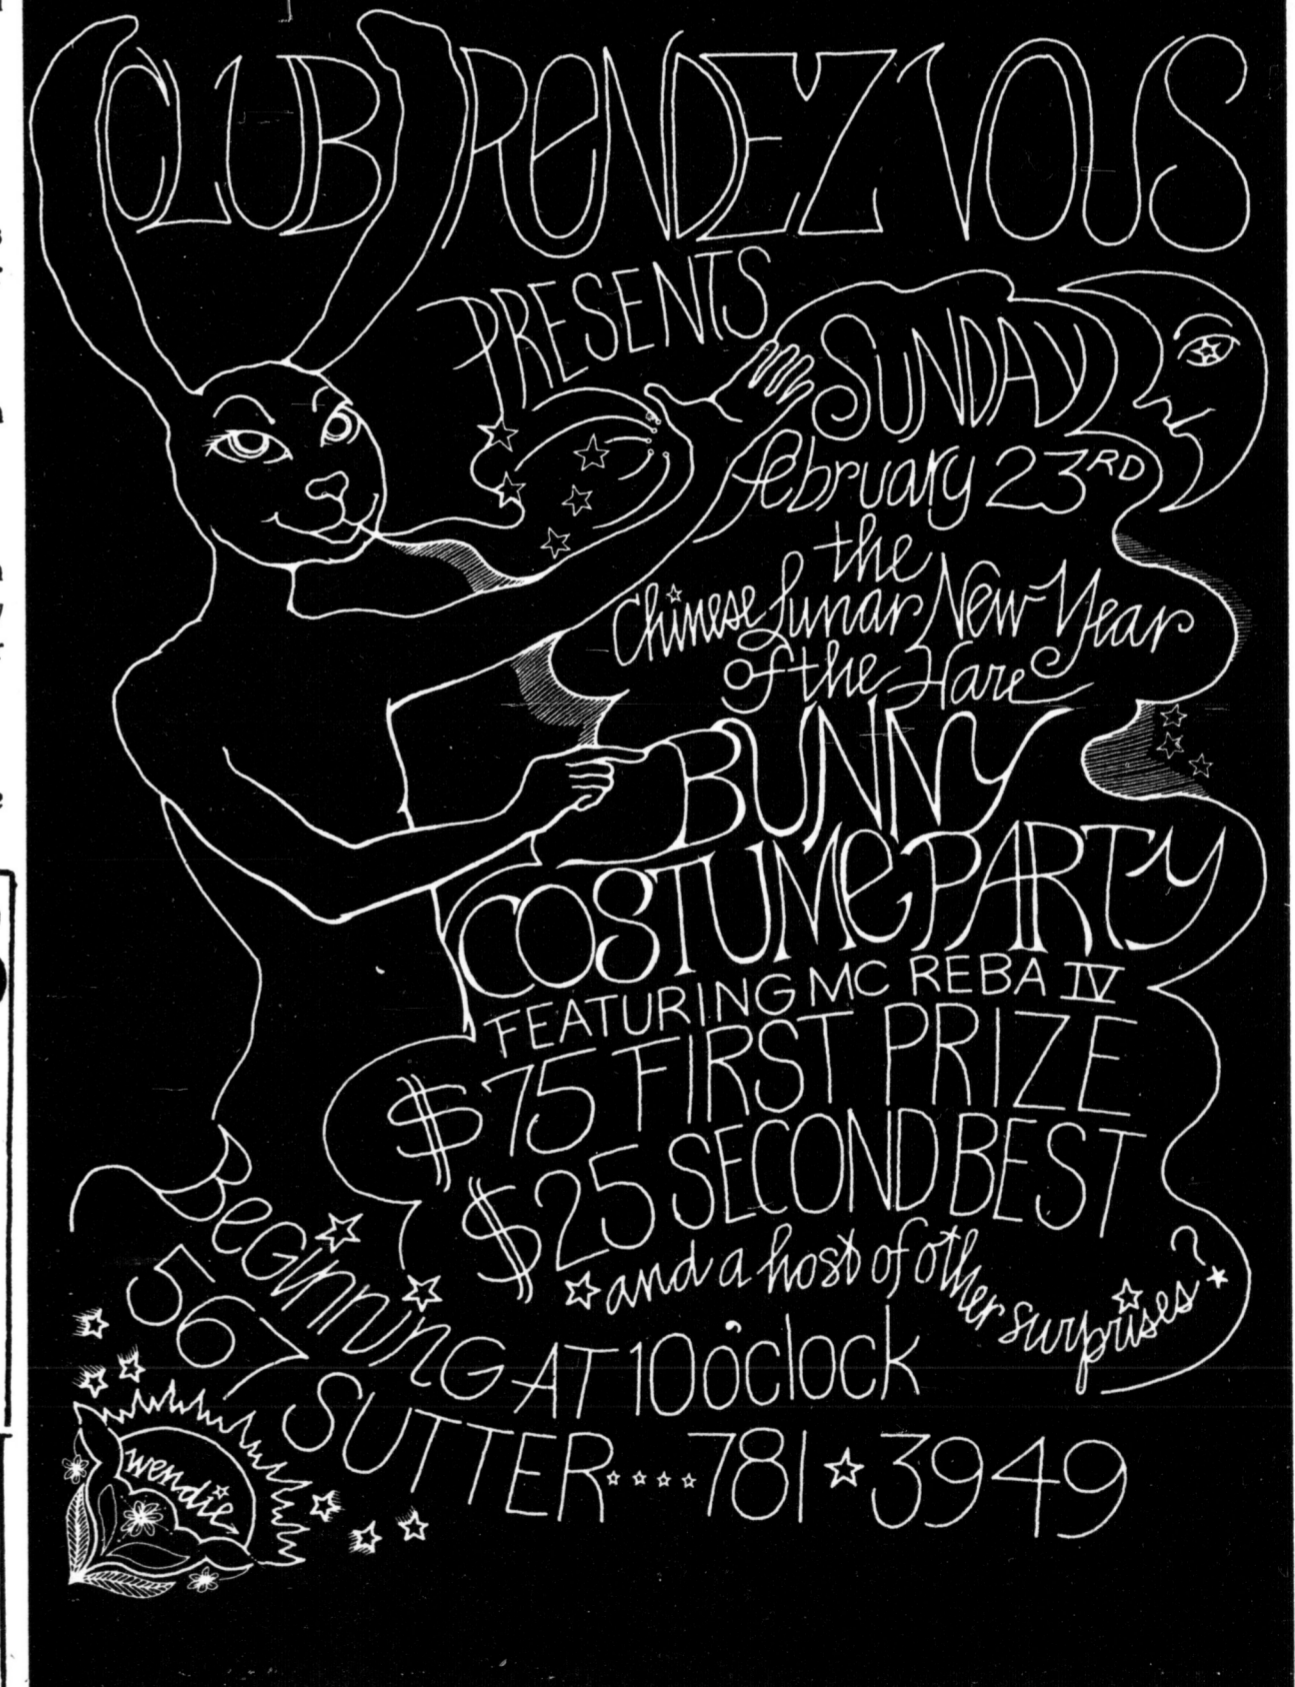 CLUB RENDEZVOUS
PRESENTS
SUNDAY
february 23RD
the
Chinese Lunar New Year
of the Hare
BUNNY
COSTUMe PARTY
FEATURING MC REBA IV
$75 FIRST PRIZE
$25 SECOND BEST
and a host of other surprises?
BeGinninG AT 10 o'clock
567 SUTTER....781★3949
wendie